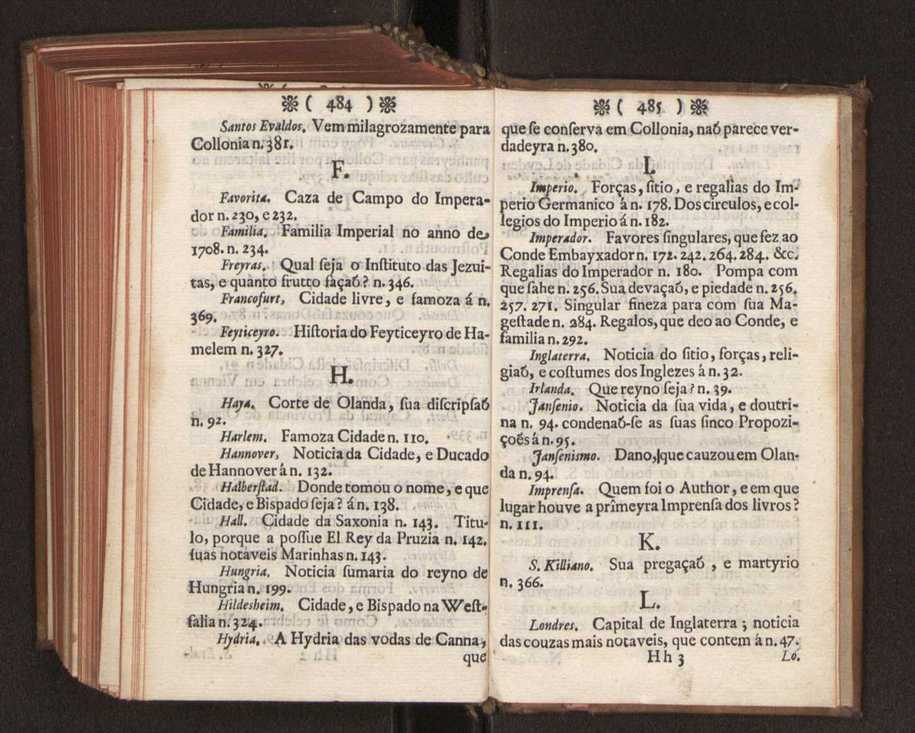 ( 484 )
Santos Evaldos. Vem milagrozamente para
Collonia n. 381.
F.
Favorita. Caza de Campo do Impera-
dor n. 230, e 232.
Familia. Familia Imperial no anno de
1708. n. 234.
Freyras. Qual seja o Instituto das Jezui-
tas, e quanto frutto façaõ? n. 346.
Francofurt, Cidade livre, e famoza á n.
369.
Feyticeyro. Historia do Feyticeyro de Ha-
melem n. 327.
H.
Haya. Corte de Olanda, sua discripsaõ
n. 92.
Harlem. Famoza Cidade n. 110.
Hannover, Noticia da Cidade, e Ducado
de Hannover á n. 132.
Halberstad. Donde tomou o nome, e que
Cidade, e Bispado seja? á n. 138.
Hall. Cidade da Saxonia n. 143. Titu-
lo, porque a possue El Rey da Pruzia n. 142.
suas notaveis Marinhas n. 143.
Hungria. Noticia sumaria do reyno de
Hungria n. 199.
Hildesheim. Cidade, e Bispado na West-
falia n. 324.
Hydria. A Hydria das vodas de Canna,
que
( 485 )
que se conserva em Collonia, naõ parece ver-
dadeyra n. 380.
I.
Imperio. Forças, sitio, e regalias do Im-
perio Germanico á n. 178. Dos circulos, e col-
legios do Imperio á n. 182.
Imperador. Favores singulares, que fez ao
Conde Embayxador n. 172. 242. 264. 284. &c.
Regalias do Imperador n. 180. Pompa com
que sahe n. 256. Sua devaçaõ, e piedade n. 256.
257. 271. Singular fineza para com sua Ma-
gestade n. 284. Regalos, que deo ao Conde, e
familia n. 292.
Inglaterra. Noticia do sitio, forças, reli-
giaõ, e costumes dos Inglezes á n. 32.
Irlanda. Que reyno seja? n. 39.
Jansenio. Noticia da sua vida, e doutri-
na n. 94. condenaõ-se as suas sinco Propozi-
çoẽs á n. 95.
Jansenismo. Dano, que cauzou em Olan-
da n. 94.
Imprensa. Quem foi o Author, e em que
lugar houve a prîmeyra Imprensa dos livros?
n. 111.
K.
S. Killiano. Sua pregaçaõ, e martyrio
n. 366.
L.
Londres. Capital de Inglaterra; noticia
das couzas mais notaveis, que contem á n. 47.
H h 3 Lo.